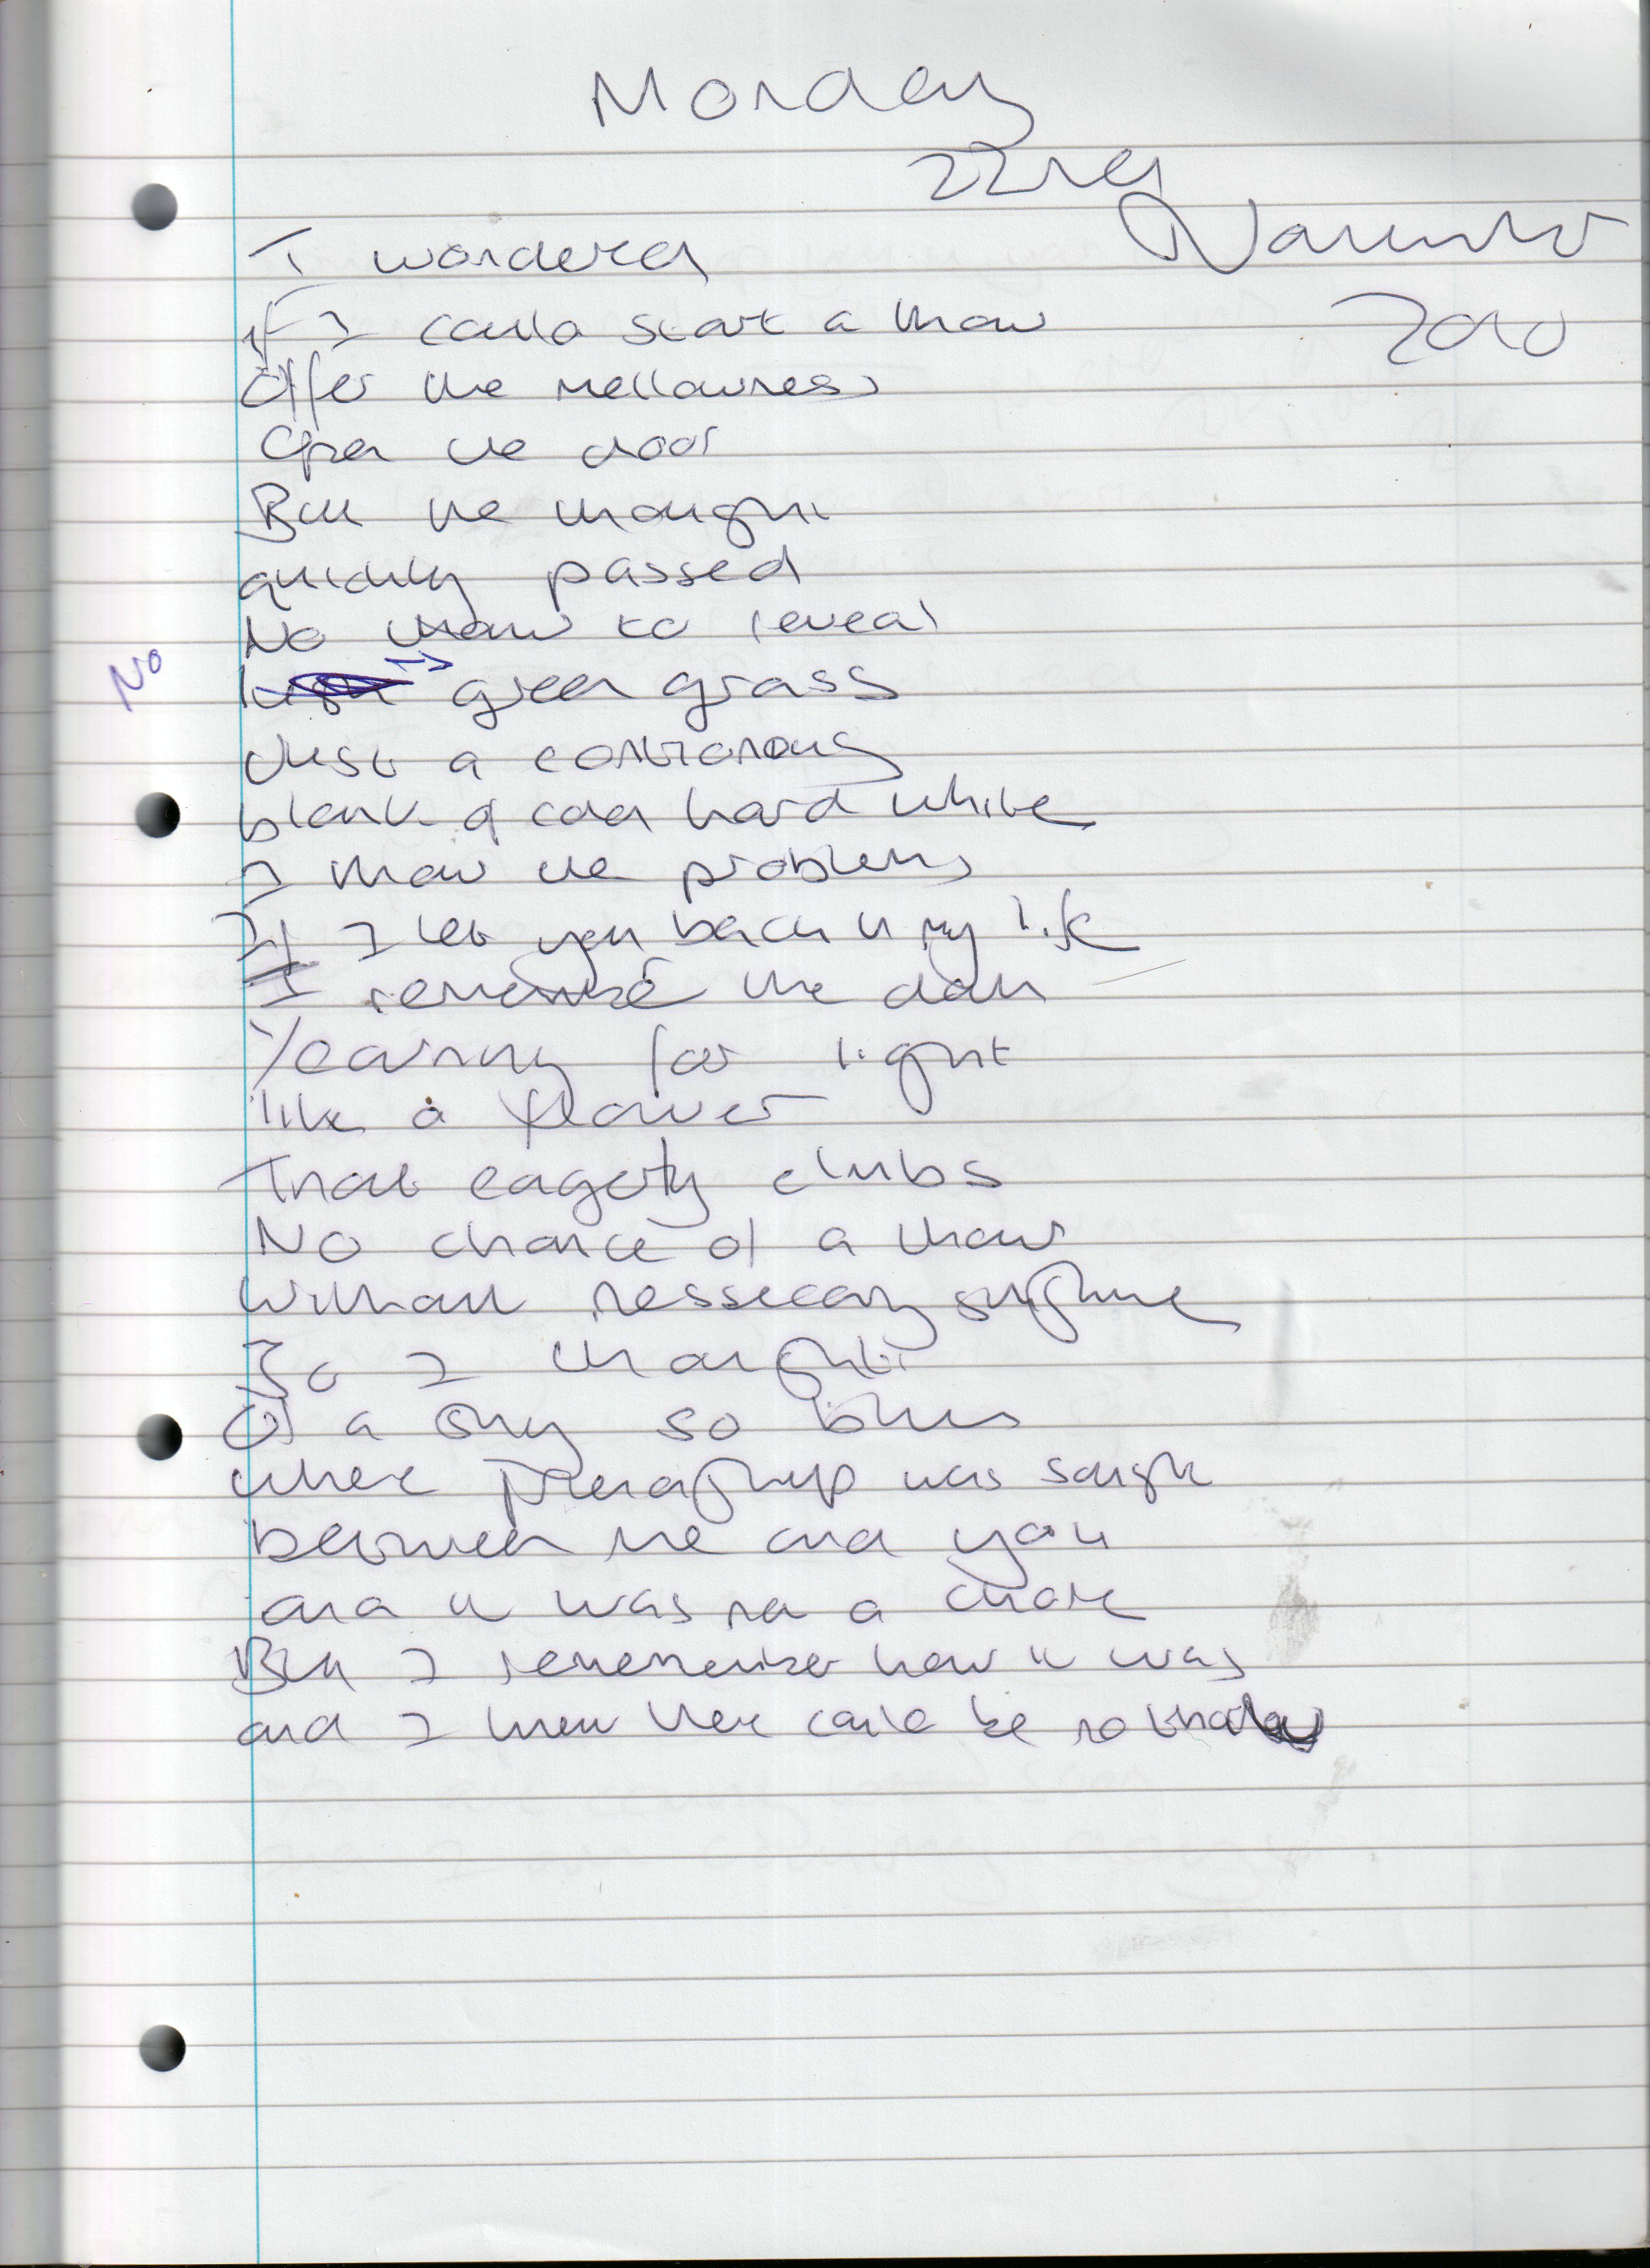 Monday
22nd
November
2010
I wondered
if I could start a thaw
Offer the mellowness
Open the door
But the thought
quickly passed
No thaw to reveal
No
green grass
Just a
blank of cold hard white
I know the problems
If I let you back in my life
I remember the dark
Yearning for light
like a flower
That eagerly climbs
No chance of a thaw
Without nessecary sunshine
So I thought
Of a sky so blue
where friendship was
between me and you
and it was not a chore
But I rememember how it was
and I knew there could be no thaw